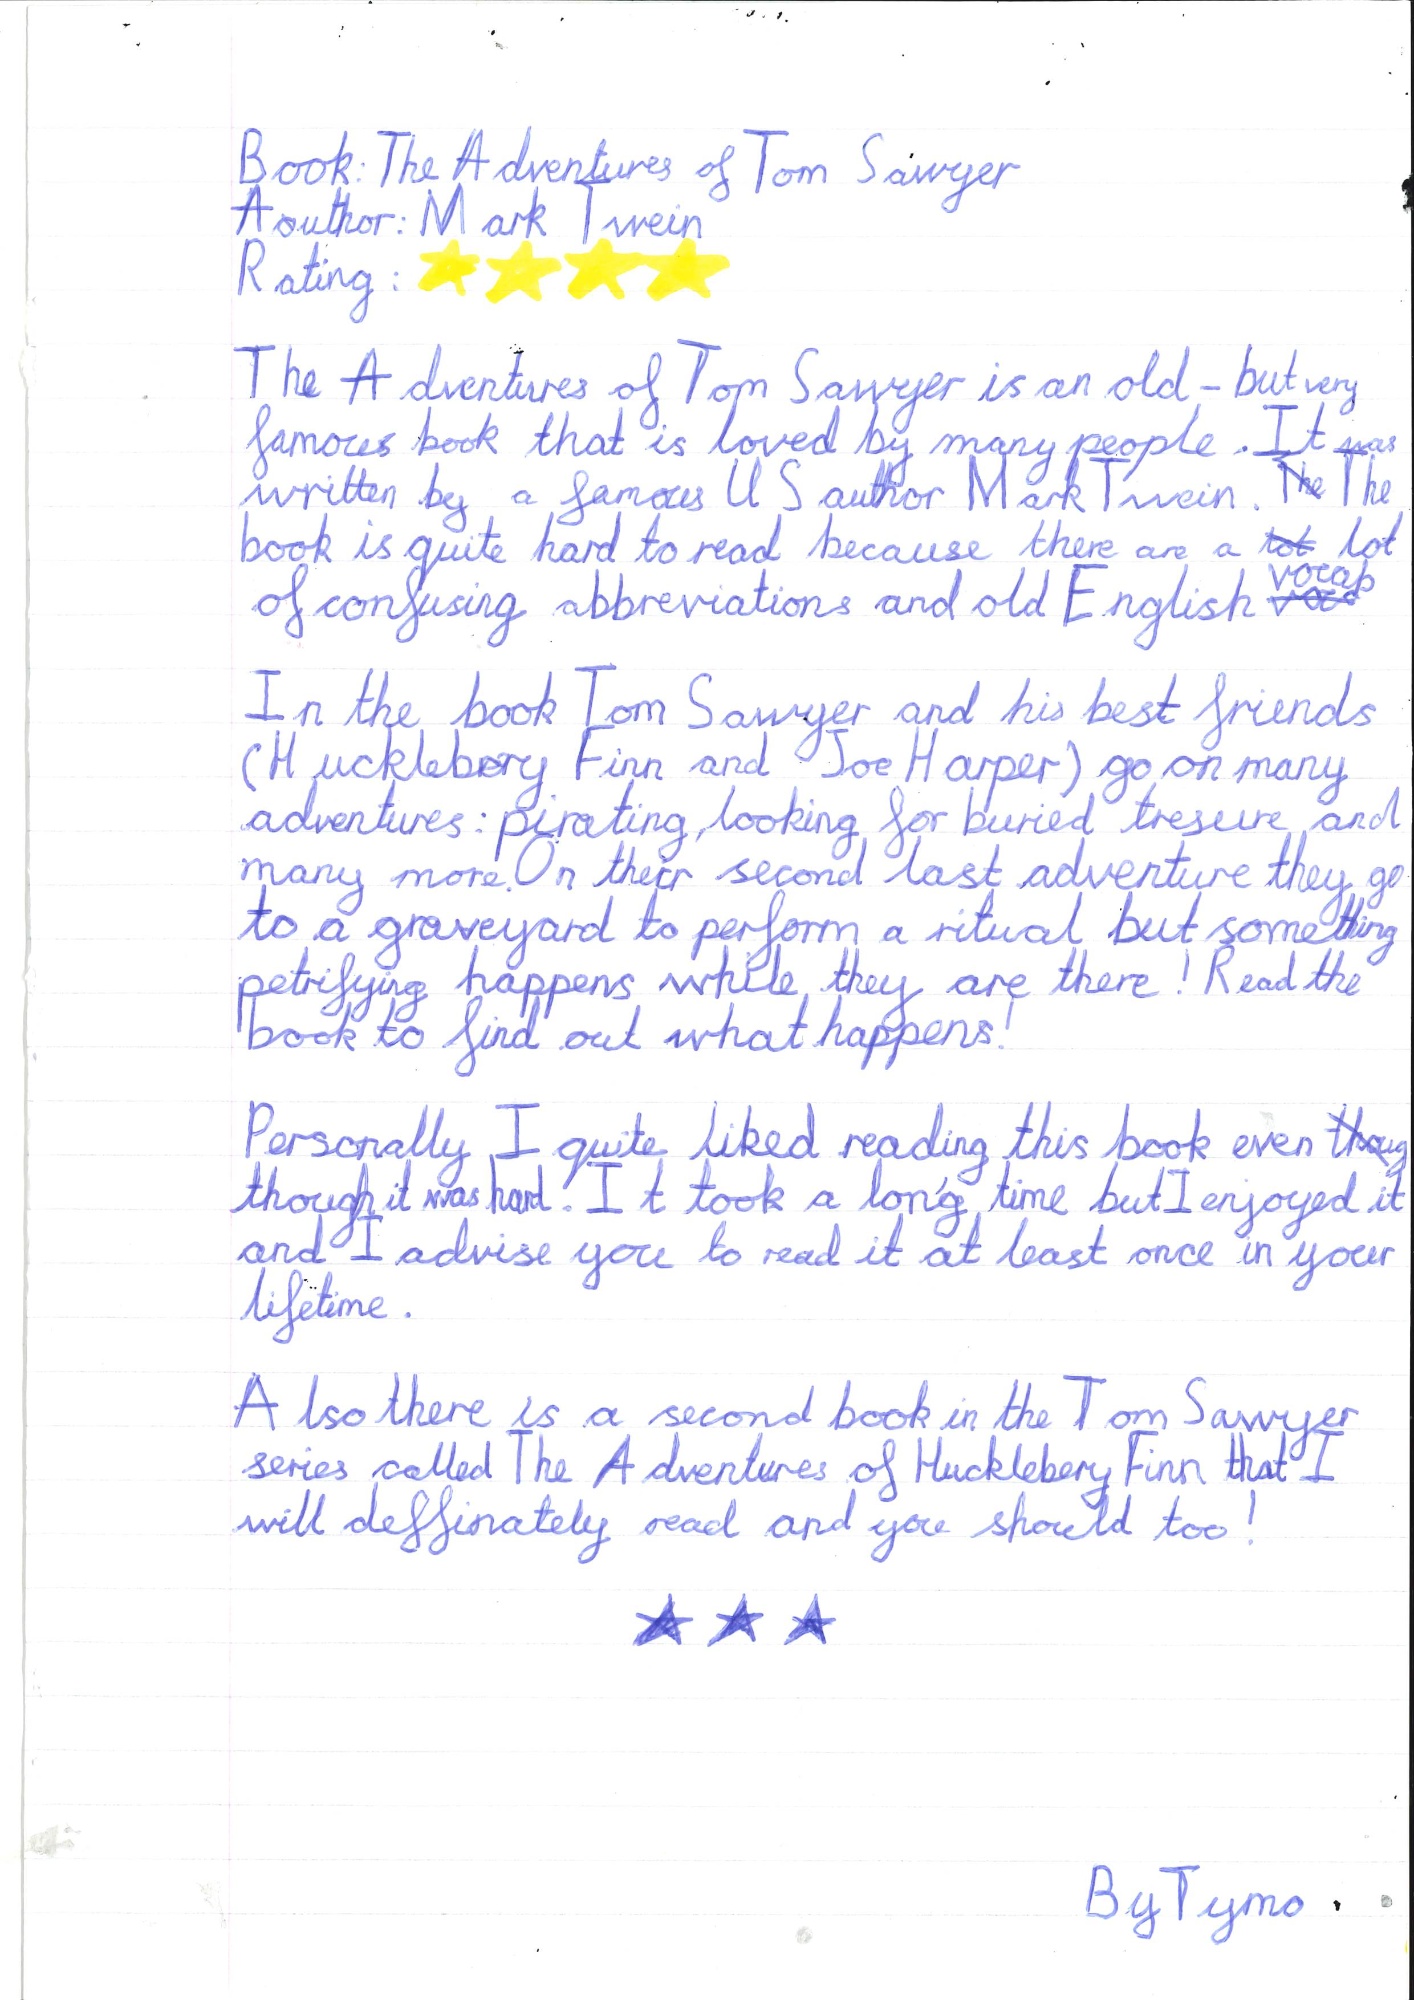 Book: The Adventures of Tom Sawyer
Aouthor: Mark Twein
Rating:
The Adventures of Tom Sawyer is an old - but very
famous book that is loved by many people. It was
written by a famous US author Mark Twein. The The
book is quite hard to read because there are a lot lot
of confusing abbreviations and old English vocab
In the book Tom Sawyer and his best friends
(Huckleberry Finn and Joe Harper) go on many
adventures: pirating, looking for buried tresure and
many more. On their second last adventure they go
to a graveyard to perform a ritual but something
petrifying happens while they are there! Read the
book to find out what happens!
Personally I quite liked reading this book even thoug
though it was hard. It took a long time but I enjoyed it
and I advise you to read it at least once in your
lifetime.
Also there is a second book in the Tom Sawyer
series called The Adventures of Huckleberry Finn that I
will deffinately read and you should too!
By Tymo